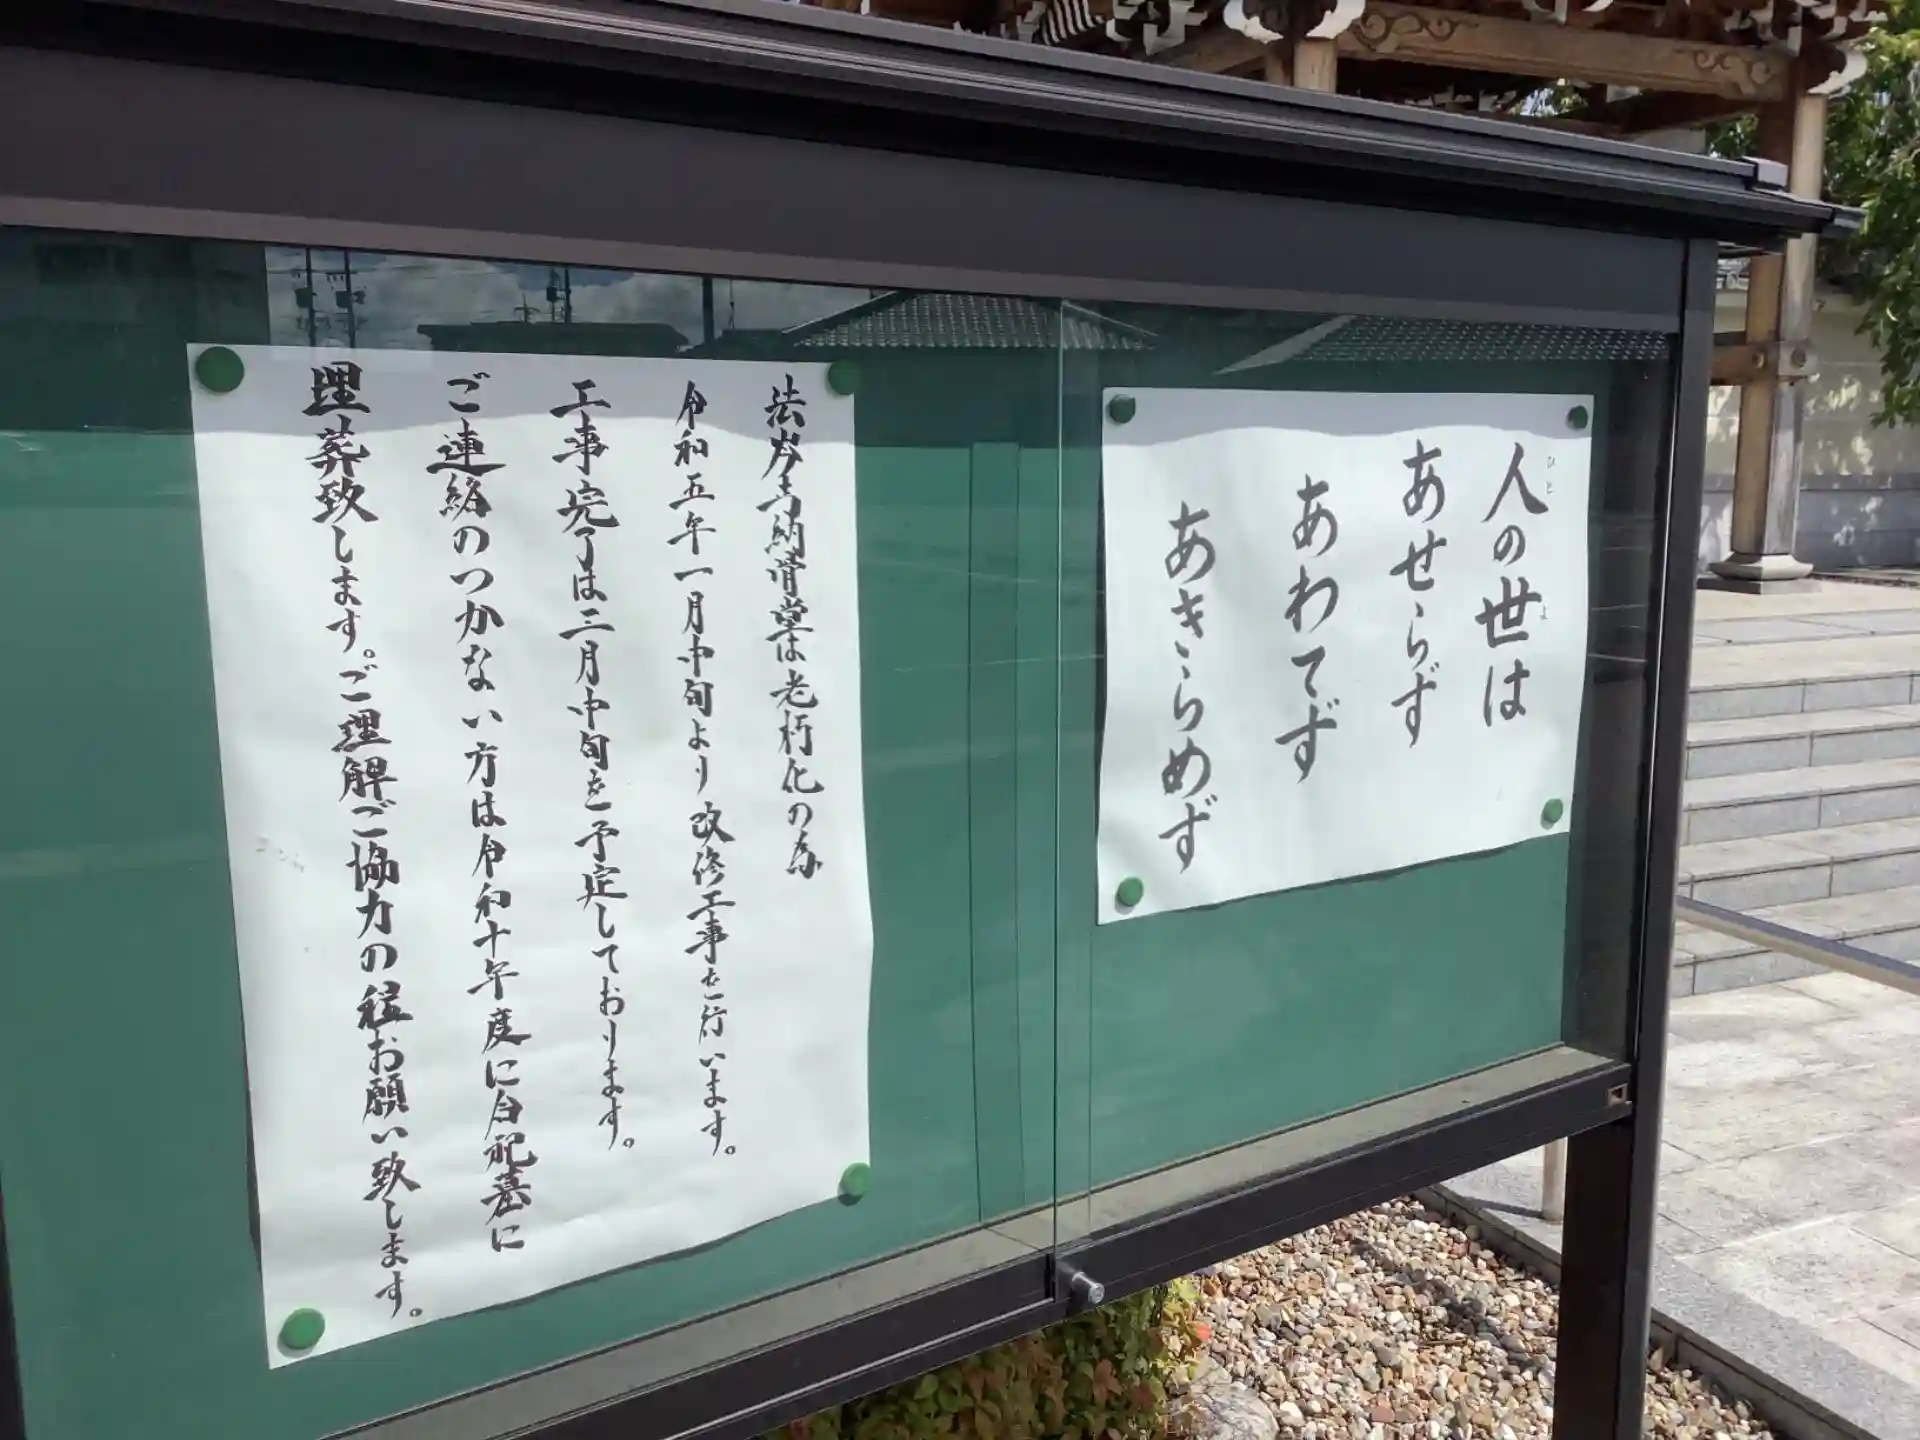 人の世は
あせらず
あわてず
あきらめず
法岸寺納骨堂は老朽化の為
令和五年一月中旬より改修工事を行います。
工事完了は三月中旬を予定しております。
ご連絡のつかない方は令和十年度に合祀墓に
埋葬致します。ご理解ご協力の程お願い致します。